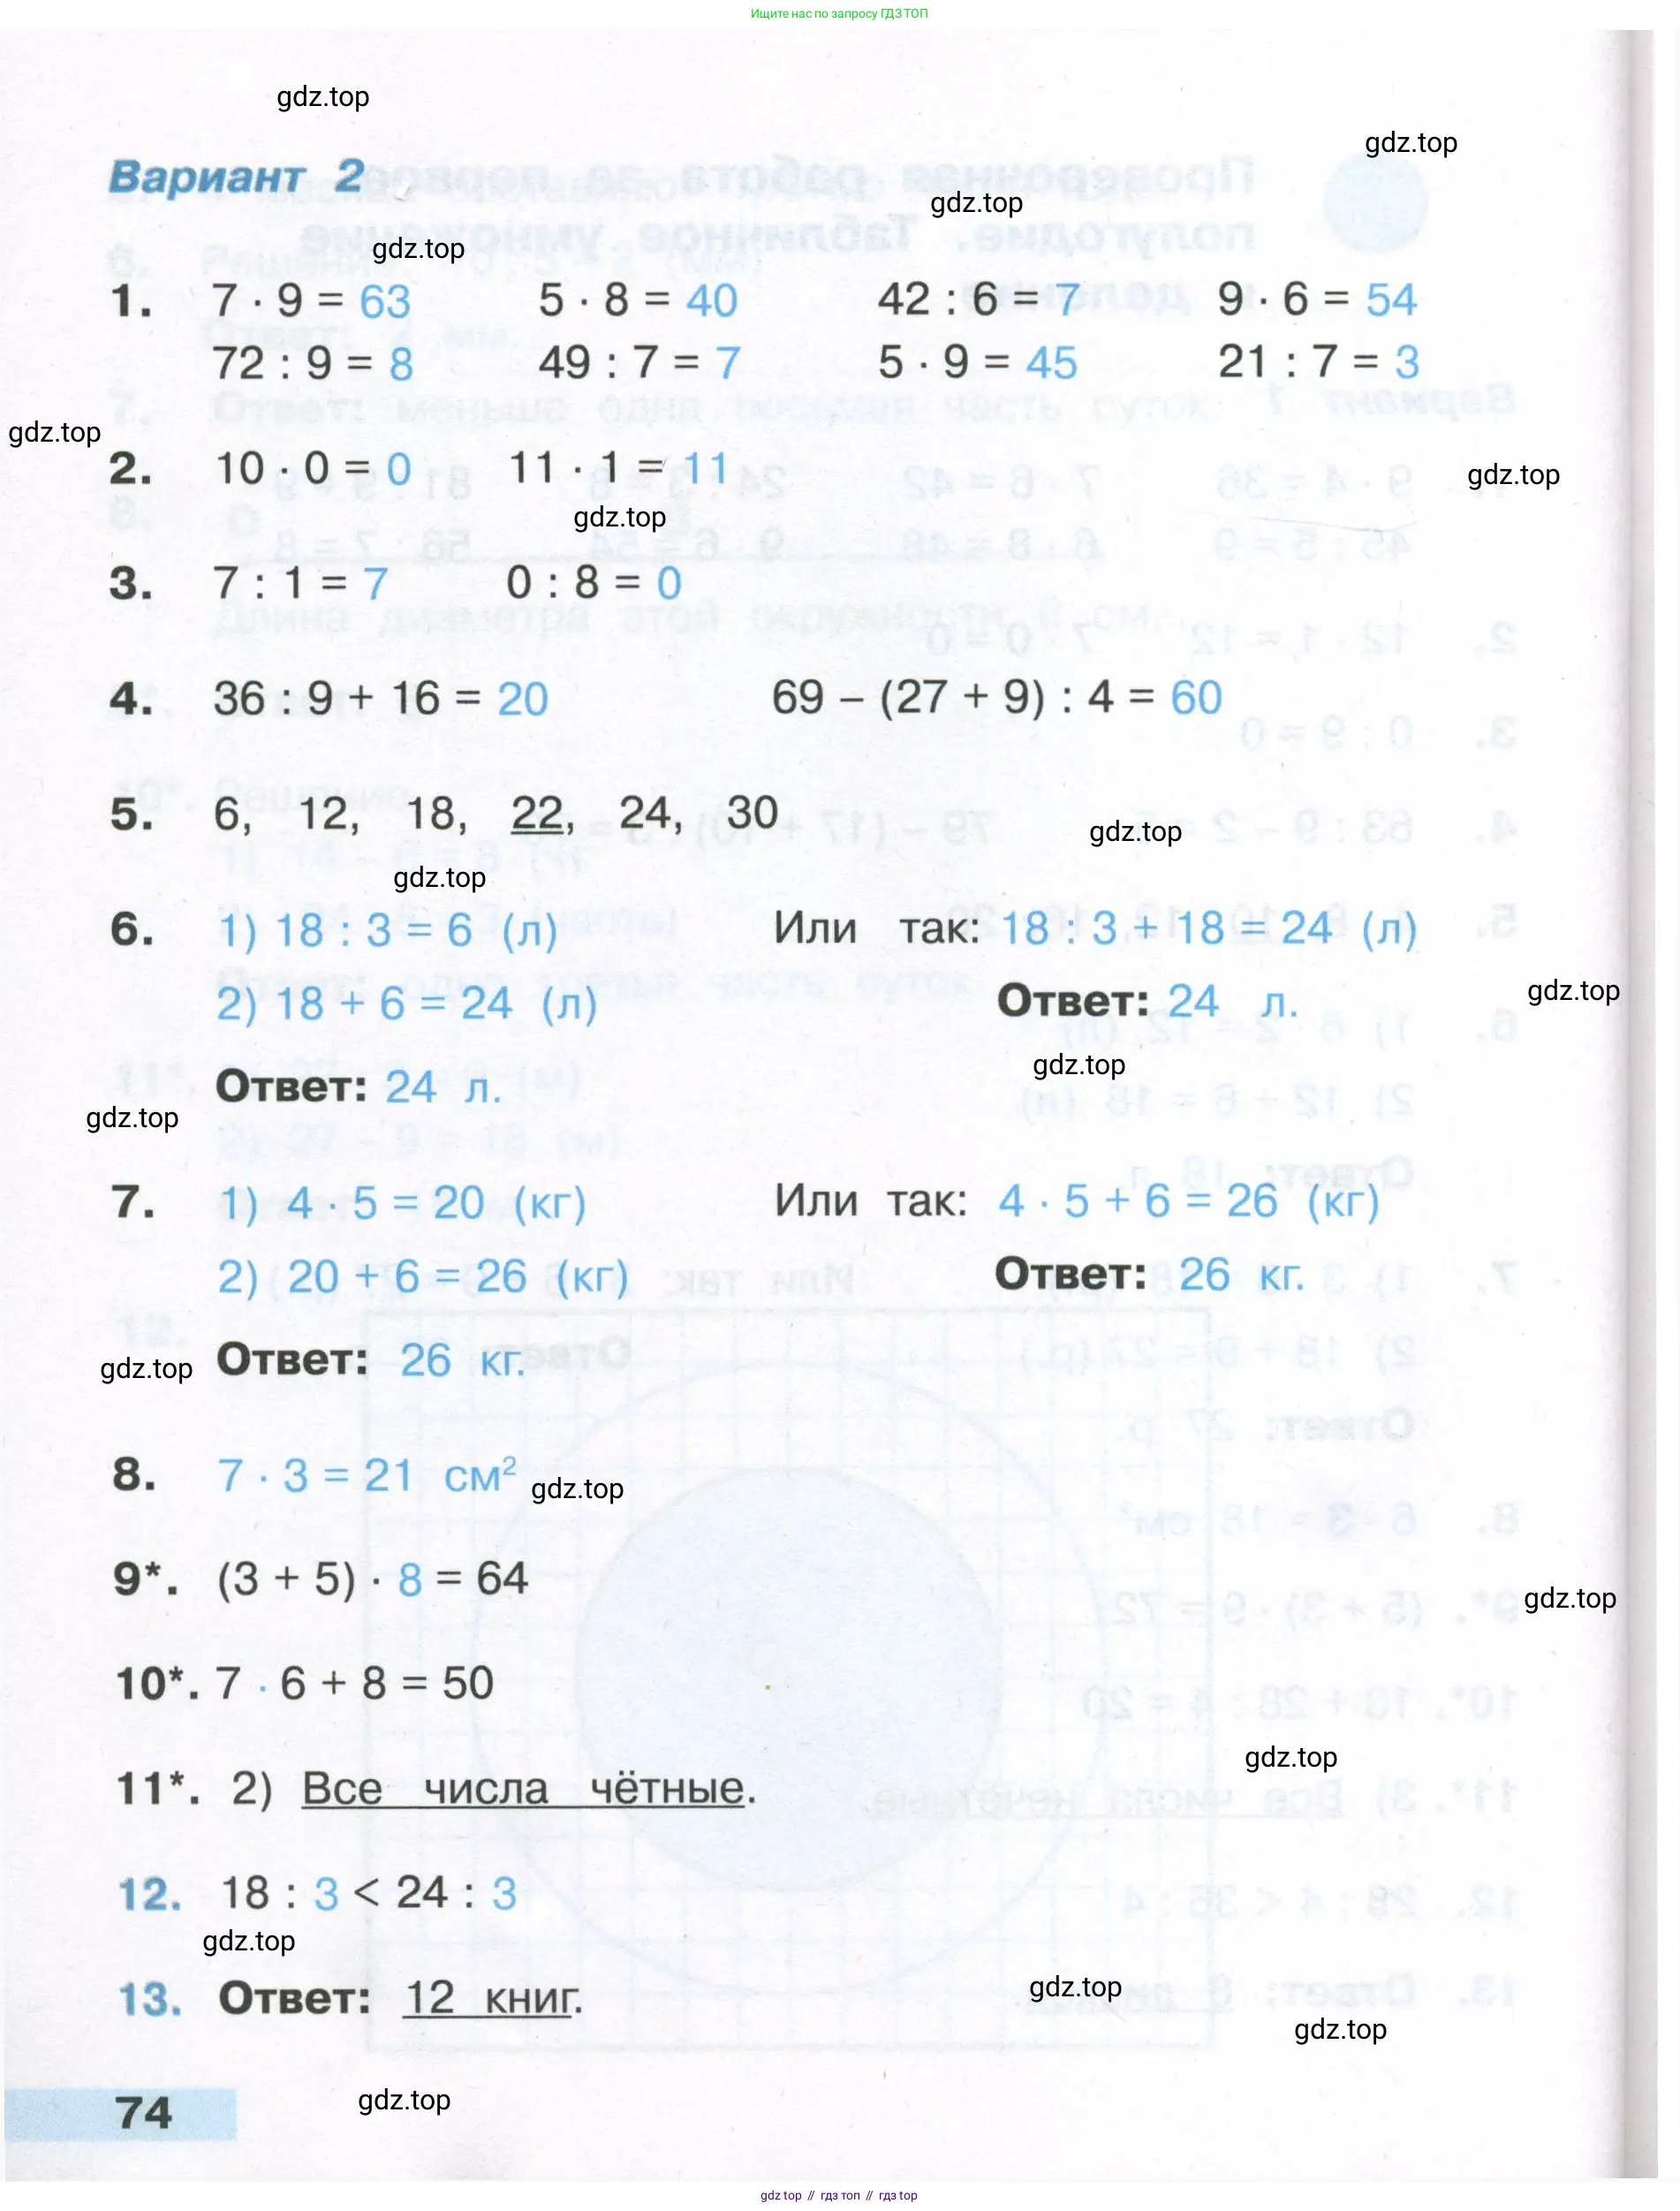 Ищите нас по запросу ГДЗ ТОП
gdz.top
gdz.top
Вариант 2
gdz.top
gdz.top
1. 7 · 9 = 63 5 · 8 = 40 42 : 6 = 7 9 · 6 = 54
72 : 9 = 8 49 : 7 = 7 5 · 9 = 45 21 : 7 = 3
gdz.top
2. 10 · 0 = 0 11 · 1 = 11
gdz.top
gdz.top
3. 7 : 1 = 7 0 : 8 = 0
4. 36 : 9 + 16 = 20 69 – (27 + 9) : 4 = 60
5. 6, 12, 18, 22, 24, 30
gdz.top
gdz.top
6. 1) 18 : 3 = 6 (л) Или так: 18 : 3 + 18 = 24 (л)
2) 18 + 6 = 24 (л) Ответ: 24 л.
gdz.top
gdz.top
Ответ: 24 л.
gdz.top
7. 1) 4 · 5 = 20 (кг) Или так: 4 · 5 + 6 = 26 (кг)
2) 20 + 6 = 26 (кг) Ответ: 26 кг.
gdz.top
Ответ: 26 кг.
8. 7 · 3 = 21 см²
gdz.top
9*. (3 + 5) · 8 = 64
gdz.top
10*. 7 · 6 + 8 = 50
gdz.top
11*. 2) Все числа чётные.
12. 18 : 3 < 24 : 3
gdz.top
13. Ответ: 12 книг.
gdz.top
gdz.top
74
gdz.top
gdz top // гдз топ // гдз top